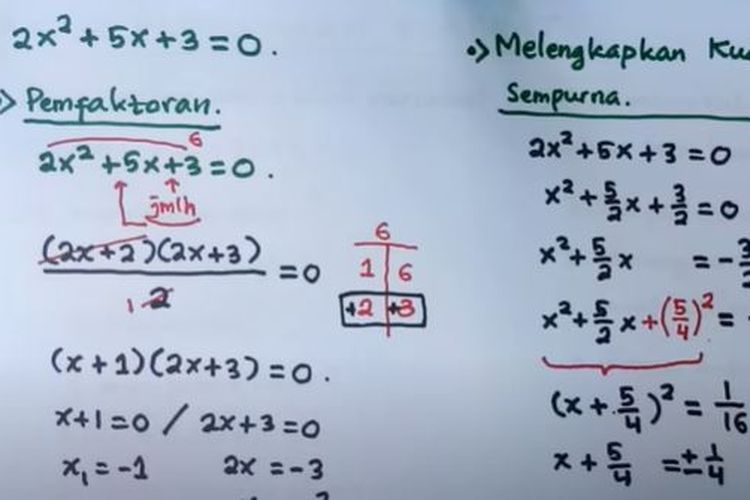 2x² + 5x + 3 = 0.
Pemfaktoran.
6
2x² + 5x + 3 = 0.
jmlh
(2x+2)(2x+3) = 0
1 2
6
1 6
+2 +3
(x+1)(2x+3) = 0.
x+1=0 / 2x+3=0
x₁ = -1 2x = -3
•> Melengkapkan
Sempurna.
2x² + 5x + 3 = 0
x² + 5/2 x + 3/2 = 0
x² + 5/2 x = -
x² + 5/2 x + (5/4)² =
(x + 5/4)² = 1/16
x + 5/4 = ± 1/4